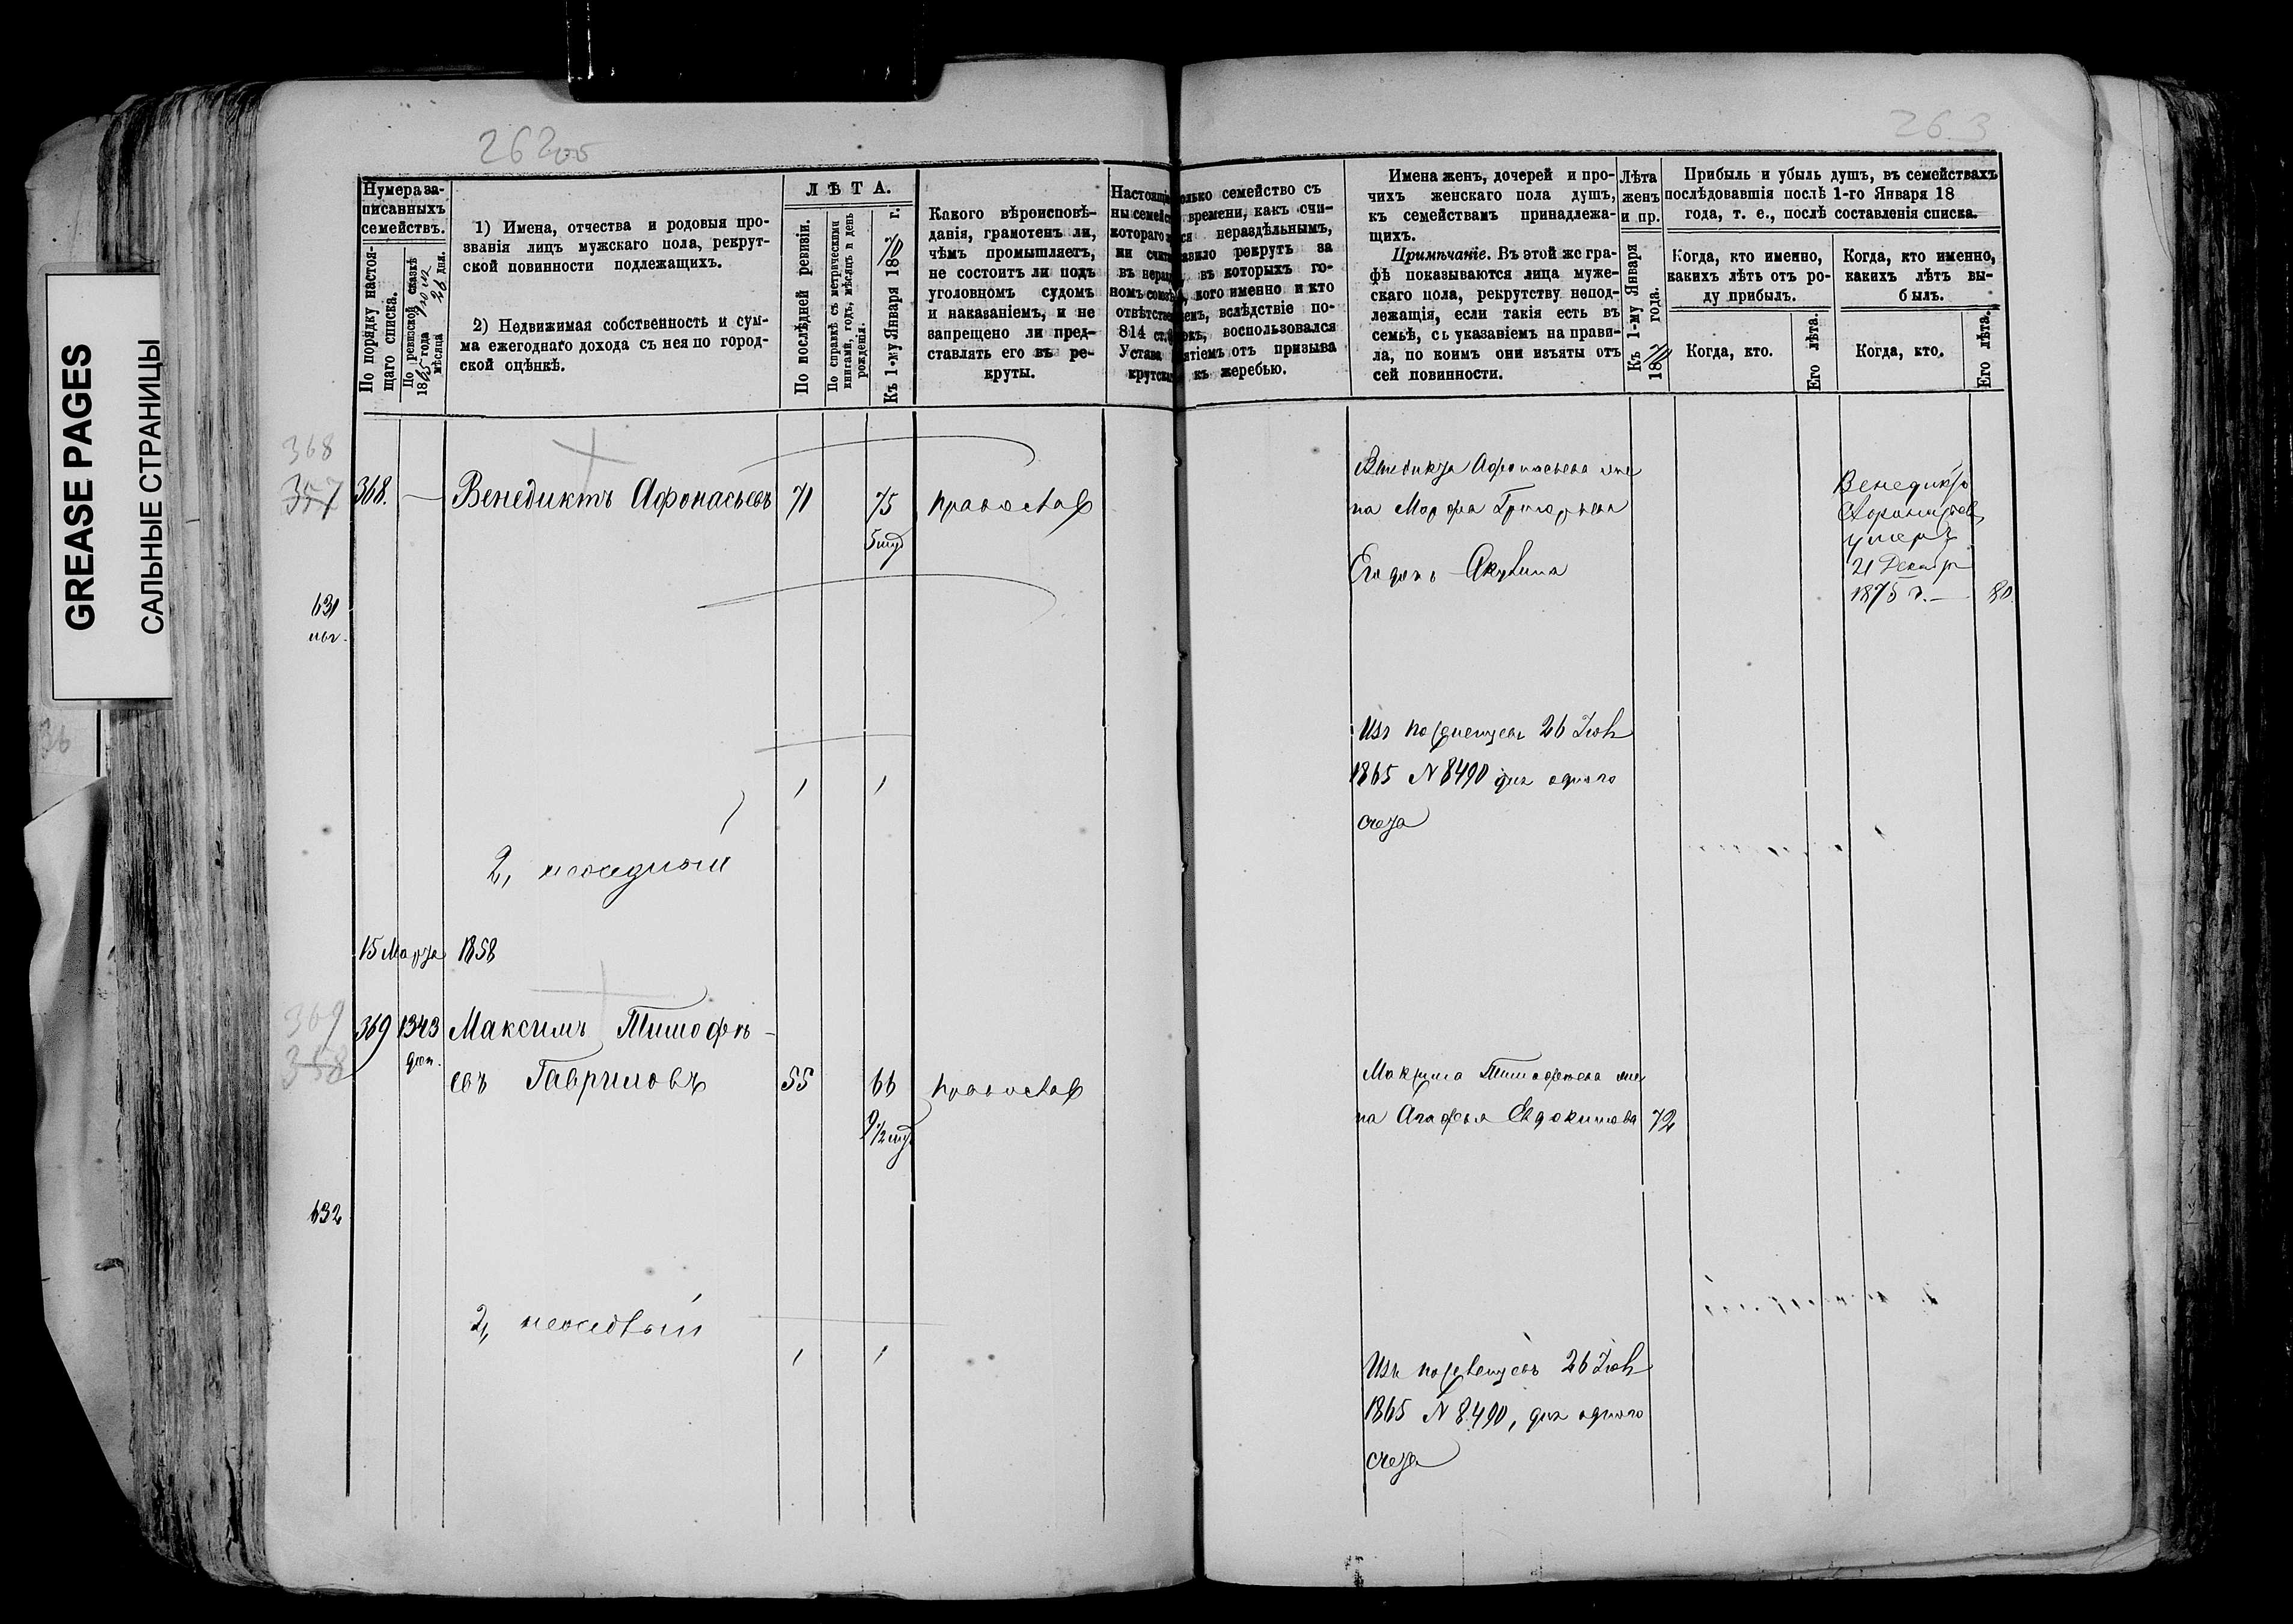 GREASE PAGES
САЛЬНЫЕ СТРАНИЦЫ
262
263
Нумера за-
писанныхъ
семействъ.
По порядку настоя-
щаго списка.
По ревизской сказкѣ
18 года
мѣсяца дня.
1) Имена, отчества и родовыя про-
званія лицъ мужскаго пола, рекрут-
ской повинности подлежащихъ.
2) Недвижимая собственность и сум-
ма ежегоднаго дохода съ нея по город-
ской оцѣнкѣ.
ЛѢТА.
По послѣдней ревизіи.
По справкѣ съ метрическими
книгами, годъ, мѣсяцъ и день
рожденія.
Къ 1-му Января 1870 г.
Какого вѣроисповѣ-
данія, грамотенъ ли,
чѣмъ промышляетъ,
не состоитъ ли подъ
уголовномъ судомъ
и наказаніемъ, и не
запрещено ли пред-
ставлять его въ ре-
круты.
Настоящ
ны семейс
котораго
ни счит
въ нераз
номъ союз
отвѣтстве
814 ст.
Устава
крутска
олько семейство съ
времени, какъ счи-
ся нераздѣльнымъ,
авило рекрутъ за
въ которыхъ го-
кого именно и кто
емъ, вслѣдствіе по-
окъ, воспользовался
ятіемъ отъ призыва
къ жеребью.
Имена женъ, дочерей и про-
чихъ женскаго пола душъ,
къ семействамъ принадлежа-
щихъ.
Примѣчаніе. Въ этой же гра-
фѣ показываются лица муже-
скаго пола, рекрутству непод-
лежащія, если такія есть въ
семьѣ, съ указаніемъ на прави-
ла, по коимъ они изъяты отъ
сей повинности.
Лѣта
женъ
и пр.
Къ 1-му Января
1870 года.
Прибыль и убыль душъ, въ семействахъ
послѣдовавшія послѣ 1-го Января 18
года, т. е., послѣ составленія списка.
Когда, кто именно,
какихъ лѣтъ отъ ро-
ду прибылъ.
Когда, кто.
Его лѣта.
Когда, кто именно,
какихъ лѣтъ вы-
былъ.
Когда, кто.
Его лѣта.
368
357
368. — Венедиктъ Афонасьевъ 71 75 православ
Венедикта Афонасьева же
на Марфа Григорьева
Венедиктъ
Афонасьев
умеръ
21 Декабр
1875 г. — 80
631
1 1
26 Іюл
1865 N 8490 для одного
счета
2,
15 Марта 1858
369
358
369 1343 Максимъ Тимофѣ-
доп.
евъ Гавриловъ 55 66 православ
9 1/2
Максима Тимофѣева же
на Агафья Евдокимова 72
632
2,
1 1
26 Іюл
1865 N 8490, для одного
счета